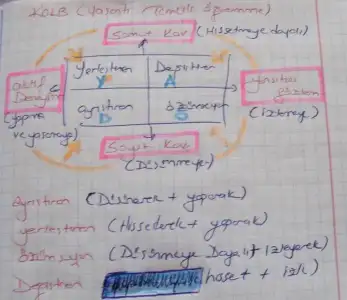 KOLB (Yaşantı Temelli Öğrenme)
Somut Kav (Hissetmeye dayalı)
Yerleştiren Değiştiren
Y A
aktif Deneyim
Yansıtıcı gözlem
(yapma ve yaşamaya)
(izlemeye)
ayrıştıran özümseyen
D Ö
Soyut Kav
(Düşünmeye)
ayrıştıran (Düşünerek + yaparak)
yerleştiren (Hissederek + yaparak)
özümseyen (Düşünmeye Dayalı + izleyerek)
Değiştiren hisset + izle)